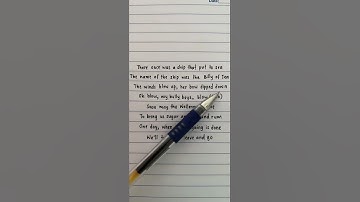 Date
There once was a ship that put to sea
The name of the ship was the Billy of Tea
The winds blew up, her bow dipped down
Oh blow, my bully boys, blow
Soon may the Wellerman
To bring us sugar and rum
One day, when is done
We'll leave and go